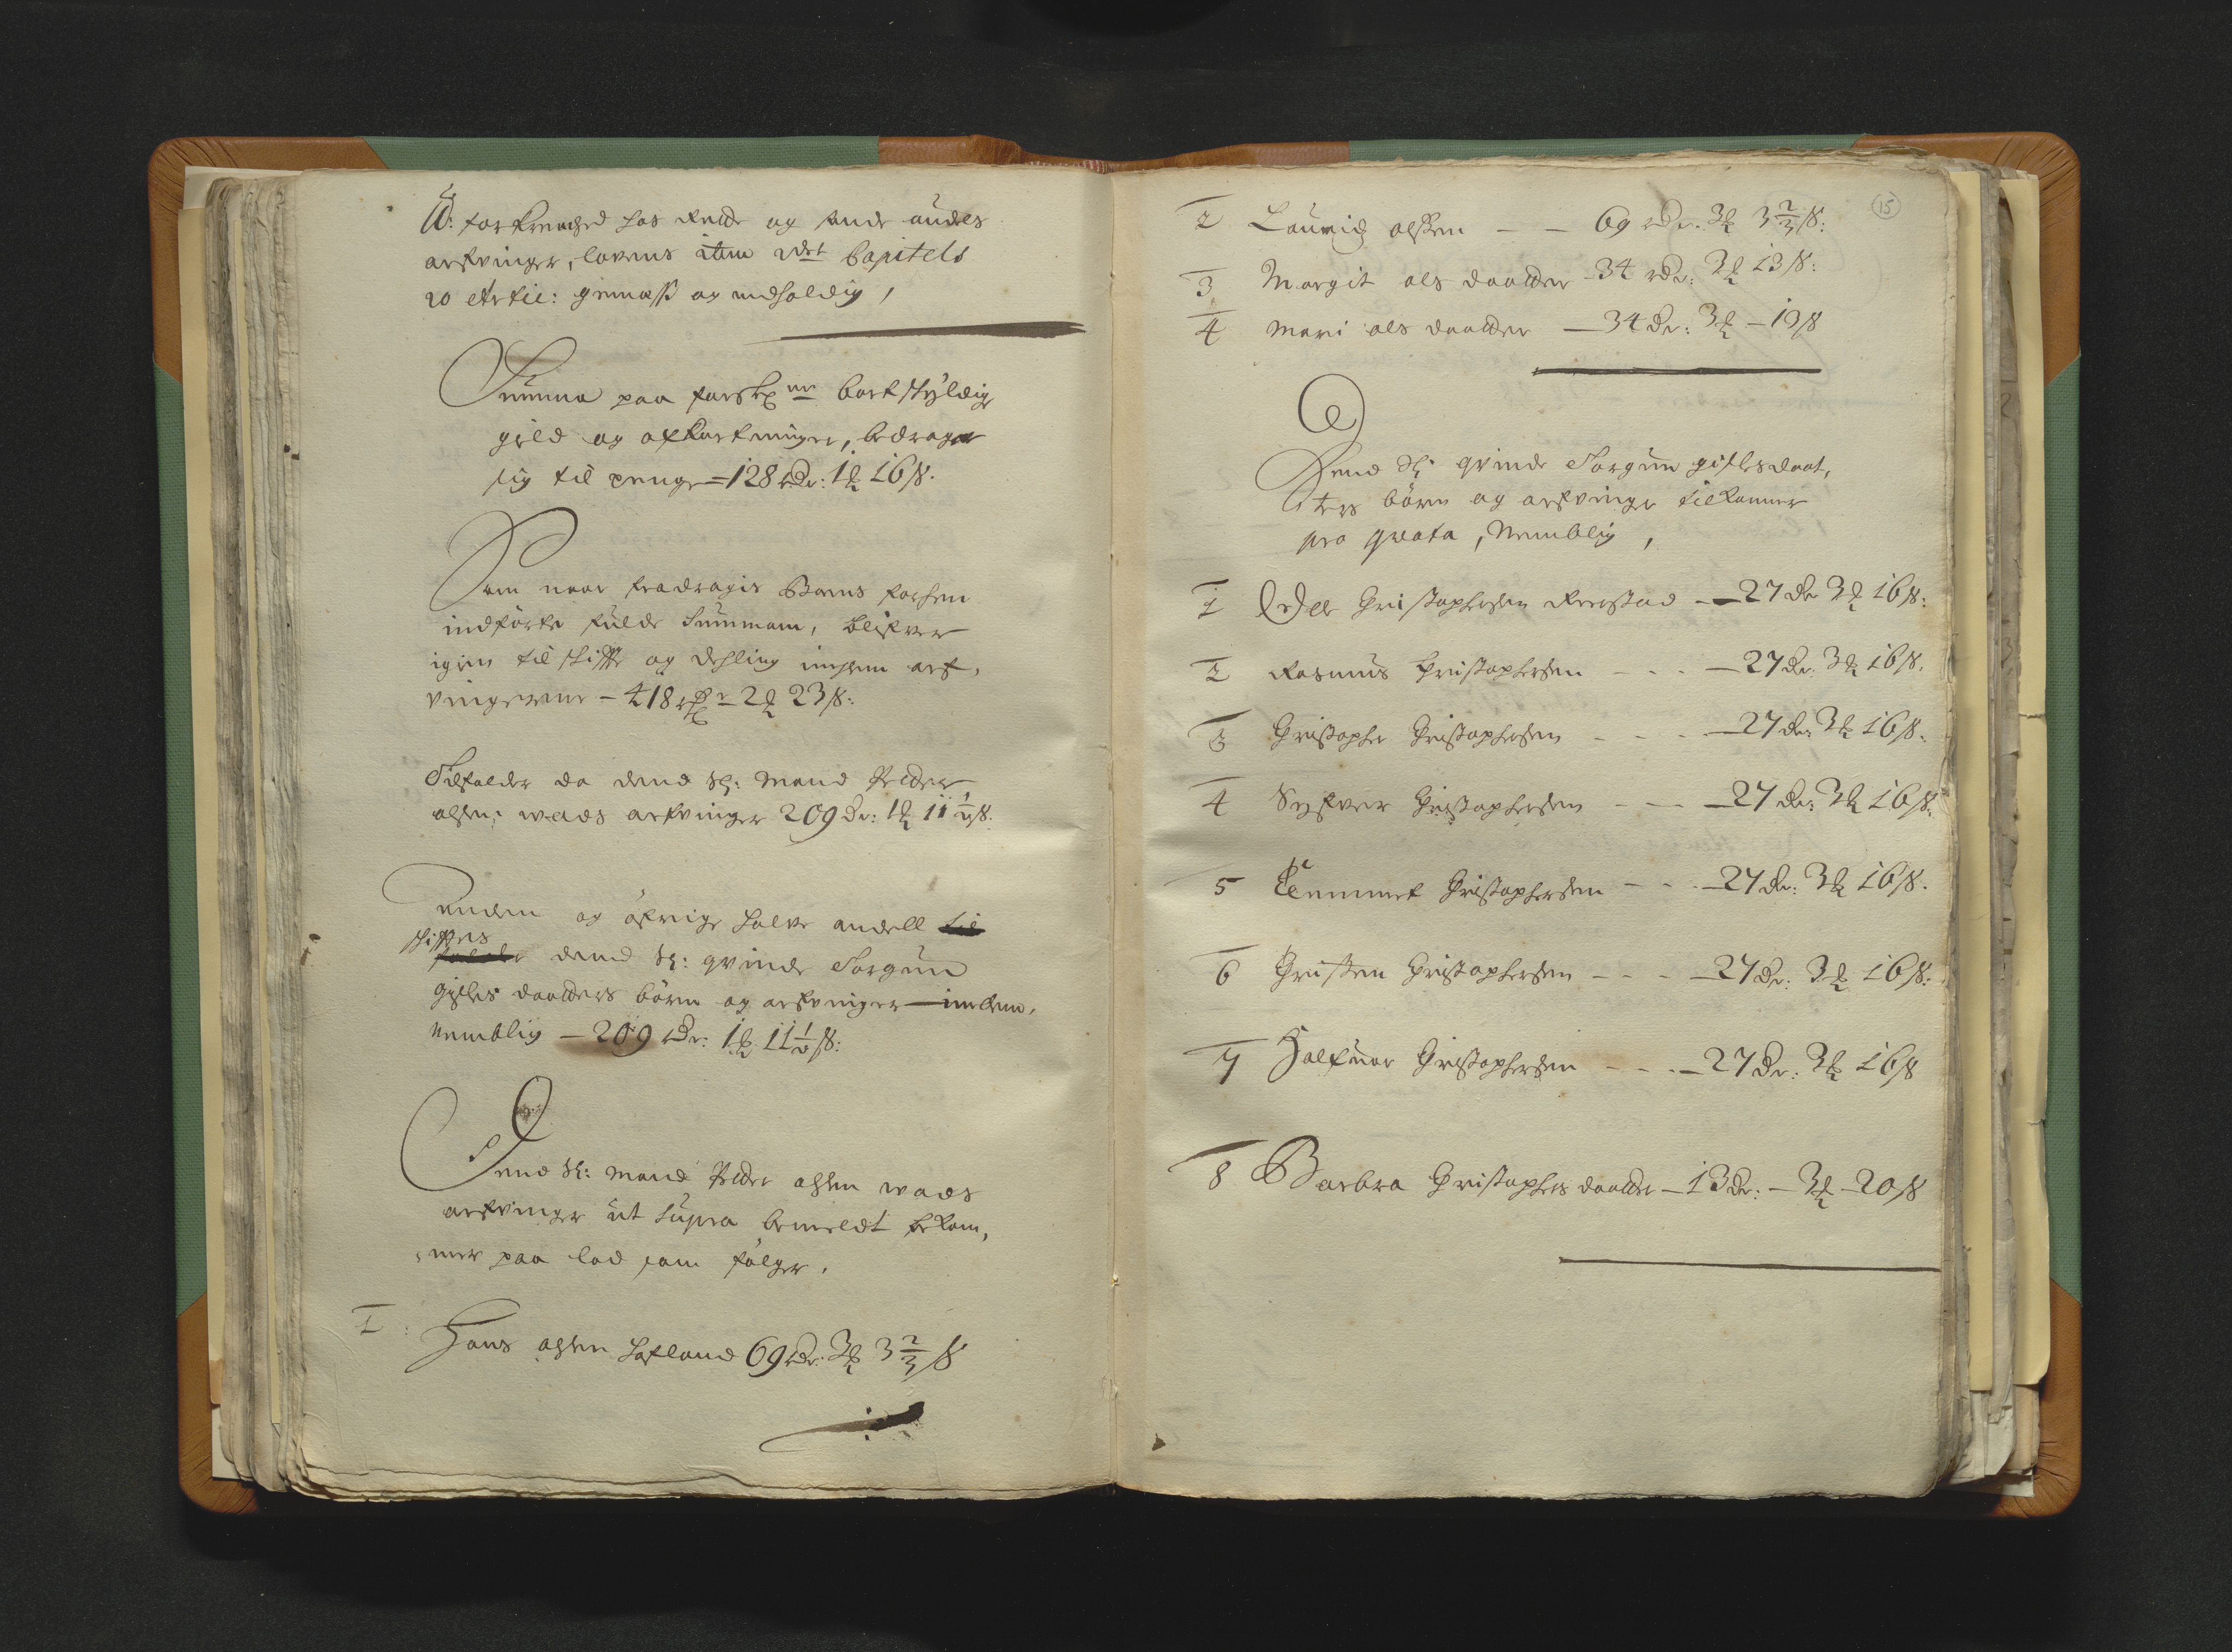 U: forkrencked hos rette og sande audels
arfvinger, lovens item 2det Capitels
20 Artic: gemæss og indholdig,
Summa paa forskr: ne bortskyldig
gield og afkortninger, bedrager
sig til penge = 128 Rdr: 1 ℔ 16 ß.
Som naar fradragis Boens forhen
indførte fulde Summam, blifver
igien til skiffte og dehling imellem arf,
vingerne - 418 rdr - 2 ℔ 23 ß:
Tilfalder da dend Sl: Mand Peder
olsen: wads arfvinger 209 Dr: 1 ℔ 11 ½ ß.
Anden og øfrige halve andell til
skifftes
dend Sl: qvinde Torgun
gisles daatters børn og arfvinger imellem,
Nemblig - 209 Rdr: 1 ℔ 11 ½ ß:
Dend Sl: Mand Peder olsen wads
arfvinger ut supra bemeldt bekom,
mer paa lod som følger.
1 Hans olsen 69 Rdr: 3 ℔ 3 2/3 ß
15
2 Lauridz olssen - - 69 Rdr: 3 ℔ 3 2/3 ß:
3 Margit ols daatter - 34 Rdr: 3 ℔ 13 ß:
4 Mari ols daatter - 34 Dr: 3 ℔ - 13 ß
Dend Sl: qvinde Torgun gislesdaat,
ters børn og arfvinge tilkommer
pro qvota, Nemblig,
1 Peder Christophersen - 27 Dr 3 ℔ 16 ß:
2 Rasmus Christophersen - - - 27 Dr. 3 ℔ 16 ß.
3 Christopher Christophersen - - - 27 Dr: 3 ℔ 16 ß.
4 Syfver Christophersen - - - 27 Dr: 3 ℔ 16 ß:
5 Christophersen - - - 27 Dr: 3 ℔ 16 ß.
6 Christen Christophersen - - - 27 Dr: 3 ℔ 16 ß:
7 Halfuor Christophersen - - - 27 Dr: 3 ℔ 16 ß
8 Barbra Christophers daatter - 13 Dr: - 3 ℔ - 20 ß